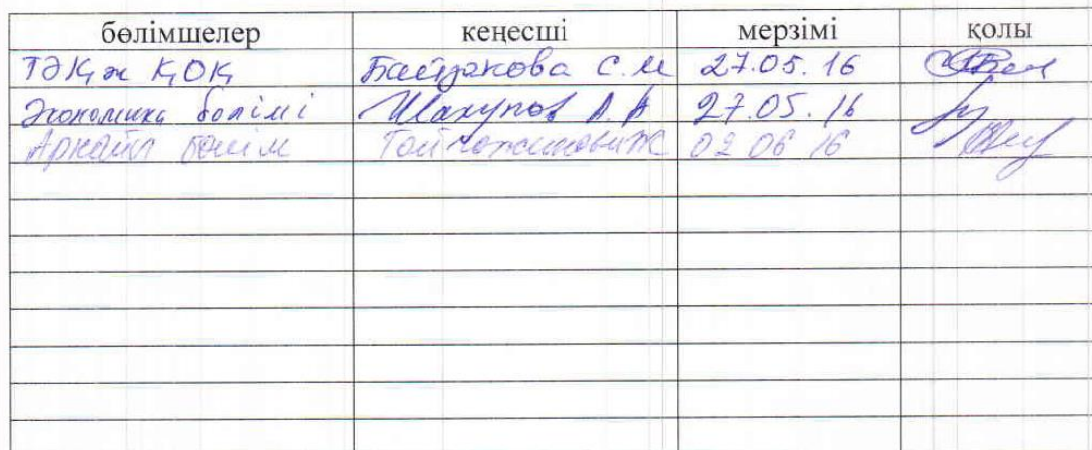 бөлімшелер кеңесші мерзімі қолы
ТӘҚ ж ҚОҚ Байзакова С.М 27.05.16
Экономика бөлімі Шакупов А.А 27.05.16
Арнайы бөлім 02 06 16